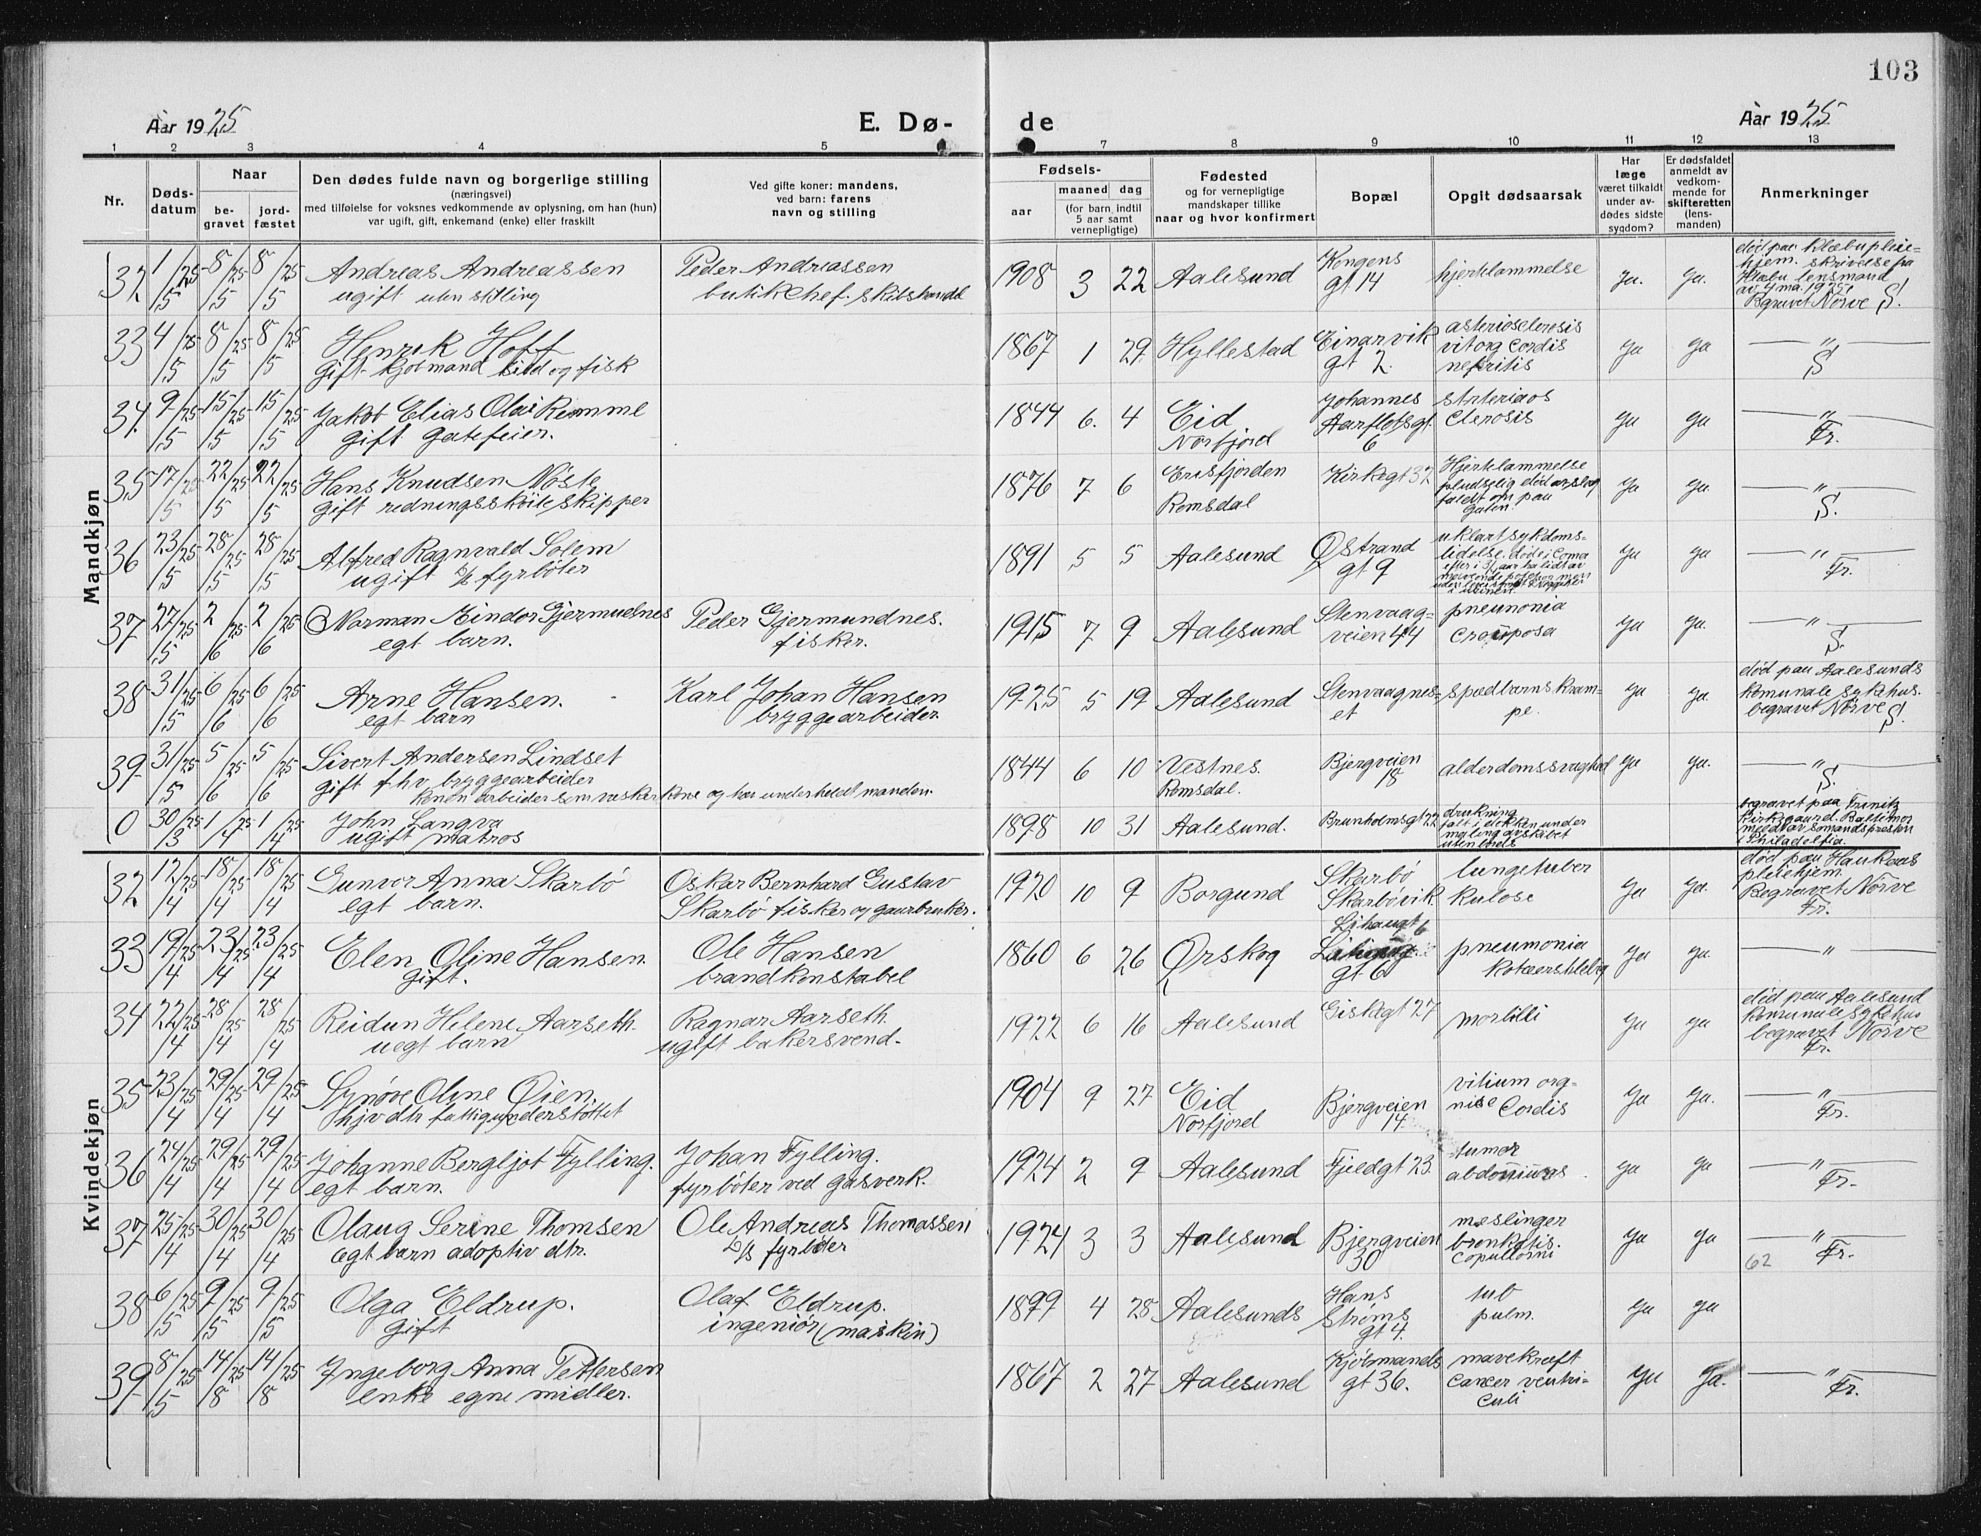 103
Aar 1925
E. Dø-
de
Aar 1925
1 2 3 4 5
7 8 9 10 11 12 13
Nr.
Døds-
datum
Naar
be-
gravet
jord-
fæstet
Den dødes fulde navn og borgerlige stilling
(næringsvei)
med tilføielse for voksnes vedkommende av oplysning, om han (hun)
var ugift, gift, enkemand (enke) eller fraskilt
Ved gifte koner: mandens,
ved barn: farens
navn og stilling
Fødsels-
aar
maaned dag
(for barn indtil
5 aar samt
vernepligtige)
Fødested
og for vernepligtige
mandskaper tillike
naar og hvor konfirmert
Bopæl
Opgit dødsaarsak
Har
læge
været tilkaldt
under av-
dødes sidste
sygdom?
Er dødsfaldet
anmeldt av
vedkom-
mende for
skifteretten
(lens-
manden)
Anmerkninger
Mandkjøn
32 1/5 25 8/5 25 8/5 25 Andreas Andreassen
ugift uten stilling
Peder Andreassen
butikchef. skibshandel
1908 3 22 Aalesund Kongens
gt 14
hjerteslammelse ja. ja.
død paa Klæbu pleie-
hjem. skrivelse fra
Klæbu lensmand
av 4 mai 1925
Begravet Nørve S.
33 4/5 25 8/5 25 8/5 25 Henrik Hoff
gift kjøbmand sild og fisk
1867 1 29 Hyllestad Einarvik
gt 2.
asteriosclerosis
vit org Cordis
nefritis
ja ja
— " —
S
34 9/5 25 15/5 25 15/5 25 Jakob Elias Olai Remme
gift gatefeier.
1844 6. 4 Eid
Norfjord
Johannes
Aarflotsgt.
6
clerosis
ja ja
— " —
Fr.
35 17/5 25 22/5 25 22/5 25 Hans Knudsen Nøste
gift redningsskøiteskipper
1876 7 6 Erisfjorden
Romsdal
Kirkegt 32
Hjerteslammelse
pludselig død
faldt om paa
gaten.
ja ja.
— " —
S.
36 23/5 25 28/5 25 28/5 25 Alfred Ragnvald Solem
ugift fyrbøter
1891 5 5 Aalesund Østrand
gt 9
uklart sykdoms-
lidelse. døde i Coma
ja ja
— " —
Fr.
37 27/5 25 2/6 25 2/6 25 Norman Eindor Gjermundnes
egt barn.
Peder Gjermundnes.
fisker.
1915 7 9 Aalesund Stenvaag-
veien 44
pneunonia
Crouposa
ja ja.
— " —
S.
38 31/5 25 6/6 25 6/6 25 Arne Hansen.
egt barn
Karl Johan Hansen
bryggearbeider.
1925 5 19 Aalesund Stenvaagnes-
et
spædbarns kram-
pe.
ja ja.
død paa Aalesunds
komunale sykehus.
begravet Nørve
S.
39 31/5 25 5/6 25 5/6 25 Sivert Andersen Lindset
gift fhv. bryggearbeider
konen arbeider som vaskerkone og har underholdt manden.
1844 6 10 Vestnes.
Romsdal.
Bjergveien
18
alderdomssvaghed ja ja.
— " —
S.
0 30/3 25 1/4 25 1/4 25 John Langva
ugift matros
1898 10 31 Aalesund. Brunholmsgt 22
drukning
falt i dokken under
maling av skibet
begravet paa Trinity
Kirkegaard. Baltimor
meldt av sømandspresten
i Philadelfia.
Kvindekjøn
32 12/4 25 18/4 25 18/4 25 Gunvor Anna Skarbö
egt barn.
Oskar Bernhard Gustav
Skarbö fisker og gaardbruker.
1920 10 9 Borgund Skarbö
Skarbövik
lungetuber
kulose
ja ja.
død paa Haukaas
pleiehjem.
Begravet Nørve
Fr.
33 19/4 25 23/4 25 23/4 25 Elen Oline Hansen
gift.
Ole Hansen
brandkonstabel
1860 6 26 Ørskog Lihaugt 6
gt 6
pneumonia
ja ja.
— " —
34 22/4 25 28/4 25 28/4 25 Reidun Helene Aarseth
uegt barn
Ragnar Aarseth
ugift bakersvend.
1922 6 16 Aalesund Giskegt 27
morbilli ja ja
død paa Aalesund
komunale sykehus
begravet Nørve
Fr.
35 23/4 25 29/4 25 29/4 25 Synøve Oline Øien.
hjv dtr fattigunderstøttet
1904 9 27 Eid
Norfjord
Bjergveien
14.
vitium org-
nise Cordis
ja ja.
— " —
Fr.
36 24/4 25 29/4 25 29/4 25 Johanne Bergljot Fylling.
egt barn.
Johan Fylling.
fyrbøter ved gasverk.
1924 2 9 Aalesund Fjeldgt 23.
tumor
ja ja
— " —
Fr.
37 25/4 25 30/4 25 30/4 25 Olaug Serine Thomsen
egt barn adoptiv dtr.
Ole Andreas Thomassen
D/S fyrbøter
1924 3 3 Aalesund Bjergveien
30
meslinger
ja ja
— " —
62 Fr.
38 6/5 25 9/5 25 9/5 25 Olga Eldrup.
gift
Olaf Eldrup.
ingeniør (maskin)
1899 4 28 Aalesunds Hans
Strøms
gt 4.
tub
pulm.
ja ja
39 8/5 25 14/8 25 14/8 25 Ingeborg Anna Pettersen
enke egne midler.
1867 2 27 Aalesund Kjøbmands
gt 36.
mavekræft
Cancer ventri-
culi
ja ja.
— " —
Fr.